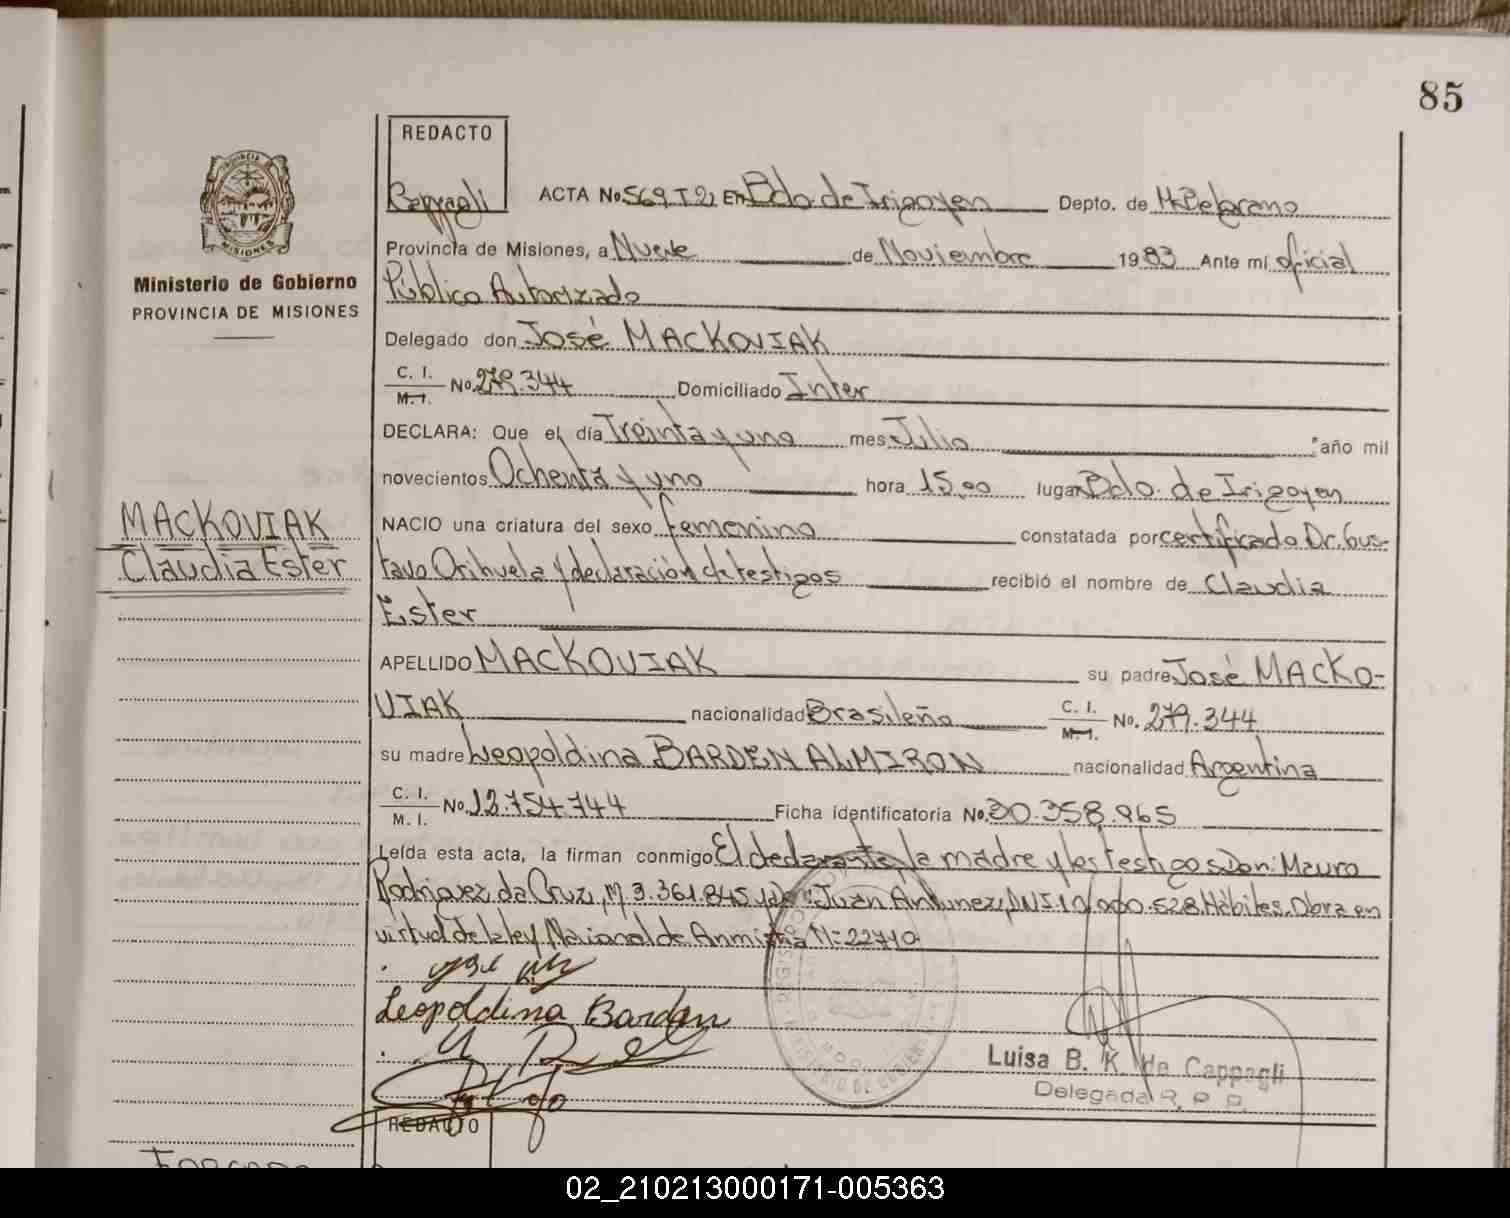 85
REDACTO
Cappagli
ACTA No. 569 T 2, En Bdo. de Irigoyen Depto. de M. Belgrano
PROVINCIA
MISIONES
Ministerio de Gobierno
PROVINCIA DE MISIONES
Provincia de Misiones, a Nueve de Noviembre 1983 Ante mí oficial
Público Autorizado
Delegado don José MACKOVIAK
C. I. / M. I. No. 279.344 Domiciliado Inter
DECLARA: Que el día Treinta y uno mes Julio año mil
novecientos Ochenta y uno hora 15,00 lugar Bdo. de Irigoyen
MACKOVIAK
Claudia Ester
NACIO una criatura del sexo femenino constatada por certificado Dr. Gus-
tavo Orihuela y declaración de testigos recibió el nombre de Claudia
Ester
APELLIDO MACKOVIAK su padre José MACKO-
VIAK nacionalidad Brasileño C. I. / M. I. No. 279.344
su madre Leopoldina BARDEN ALMIRON nacionalidad Argentina
C. I. / M. I. No. 12.754.744 Ficha identificatoria No. 30.358.965
Leída esta acta, la firman conmigo El declarante, la madre y los testigos Don: Mauro
Rodriguez da Cruz, M 3.361.845 y Don: Juan Antunez, DNI. 10.000.528. Hábiles. Obra en
virtud de la ley Nacional de Anmistía N= 22710
Leopoldina Barden
Luisa B. K. de Cappagli
Delegada R. P. P.
REDACTO
02_210213000171-005363